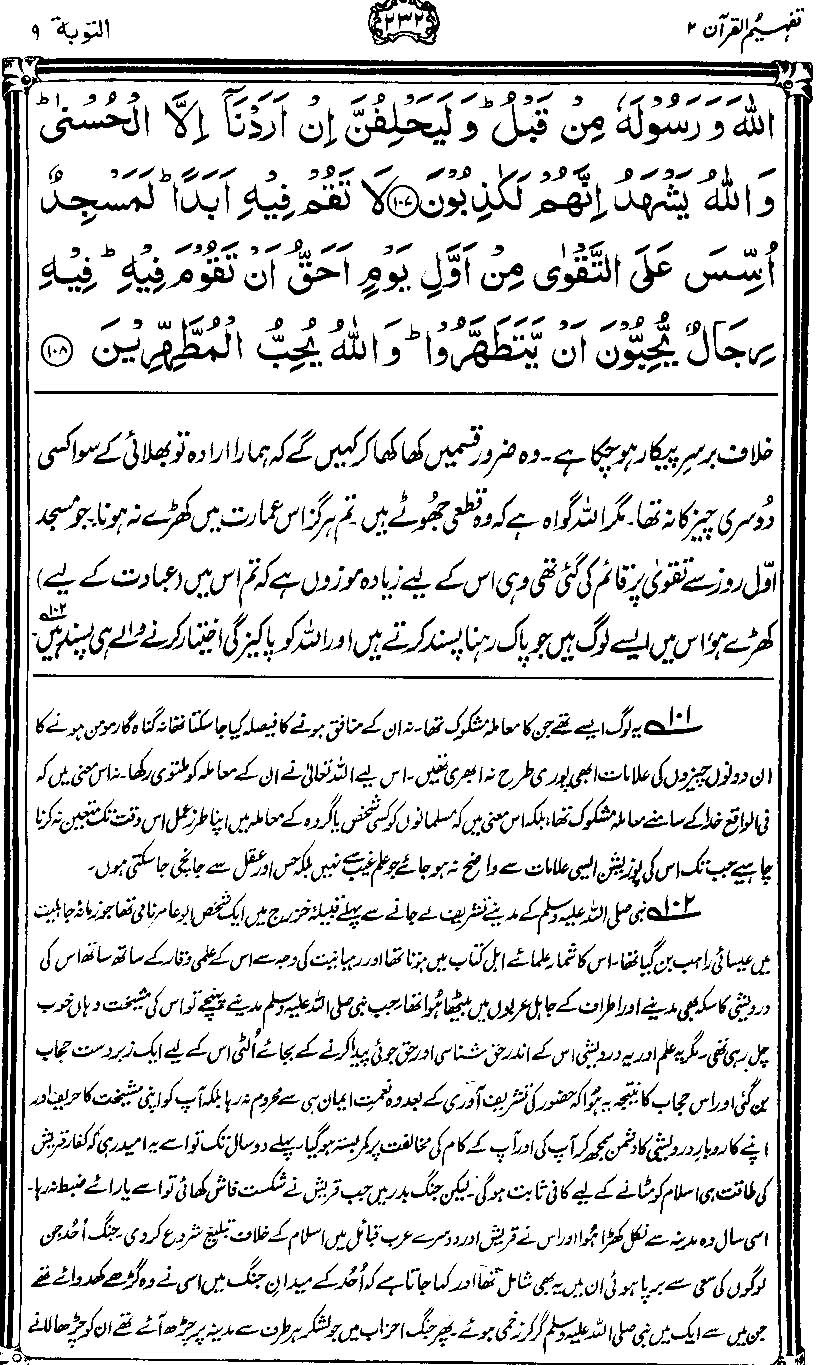 تفہیم القرآن ۲
۲۳۲
التوبة ۹
اللّٰهَ وَرَسُوْلَهٗ مِنْ قَبْلُ ؕ وَلَيَحْلِفُنَّ اِنْ اَرَدْنَاۤ اِلَّا الْحُسْنٰى ؕ
وَاللّٰهُ يَشْهَدُ اِنَّهُمْ لَكٰذِبُوْنَ ۝۱۰۷ لَا تَقُمْ فِيْهِ اَبَدًا ؕ لَمَسْجِدٌ
اُسِّسَ عَلَى التَّقْوٰى مِنْ اَوَّلِ يَوْمٍ اَحَقُّ اَنْ تَقُوْمَ فِيْهِ ؕ فِيْهِ
رِجَالٌ يُّحِبُّوْنَ اَنْ يَّتَطَهَّرُوْا ؕ وَاللّٰهُ يُحِبُّ الْمُطَّهِّرِيْنَ ۝۱۰۸
خلاف برسرِ پیکار ہو چکا ہے۔ وہ ضرور قسمیں کھا کھا کر کہیں گے کہ ہمارا ارادہ تو بھلائی کے سوا کسی
دُوسری چیز کا نہ تھا۔ مگر اللہ گواہ ہے کہ وہ قطعی جھوٹے ہیں۔ تم ہرگز اس عمارت میں کھڑے نہ ہونا۔ جو مسجد
اوّل روز سے تقویٰ پر قائم کی گئی تھی وہی اس کے لیے زیادہ موزوں ہے کہ تم اس میں (عبادت کے لیے)
کھڑے ہو، اس میں ایسے لوگ ہیں جو پاک رہنا پسند کرتے ہیں اور اللہ کو پاکیزگی اختیار کرنے والے ہی پسند ہیں۔۱۰۲
۱۰۱ یہ لوگ ایسے تھے جن کا معاملہ مشکوک تھا۔ نہ ان کے منافق ہونے کا فیصلہ کیا جا سکتا تھا نہ گناہ گار مومن ہونے کا
ان دونوں چیزوں کی علامات ابھی پوری طرح نہ ابھری تھیں۔ اس لیے اللہ تعالیٰ نے ان کے معاملہ کو ملتوی رکھا۔ نہ اس معنی میں کہ
فی الواقع خدا کے سامنے معاملہ مشکوک تھا، بلکہ اس معنی میں کہ مسلمانوں کو کسی شخص یا گروہ کے معاملہ میں اپنا طرز عمل اس وقت تک متعین نہ کرنا
چاہیے جب تک اس کی پوزیشن ایسی علامات سے واضح نہ ہو جائے جو علم غیب سے نہیں بلکہ حس اور عقل سے جانچی جا سکتی ہوں۔
۱۰۲ نبی صلی اللہ علیہ وسلم کے مدینے تشریف لے جانے سے پہلے قبیلۂ خزرج میں ایک شخص ابو عامر نامی تھا جو زمانۂ جاہلیت
میں عیسائی راہب بن گیا تھا۔ اس کا شمار علمائے اہل کتاب میں ہوتا تھا اور رہبانیت کی وجہ سے اس کے علمی وقار کے ساتھ ساتھ اس کی
درویشی کا سکہ بھی مدینے اور اطراف کے جاہل عربوں میں بیٹھا ہوا تھا۔ جب نبی صلی اللہ علیہ وسلم مدینے پہنچے تو اس کی مشیخت وہاں خوب
چل رہی تھی۔ مگر یہ علم اور یہ درویشی اس کے اندر حق شناسی اور حق جوئی پیدا کرنے کے بجائے اُلٹی اس کے لیے ایک زبردست حجاب
بن گئی اور اس حجاب کا نتیجہ یہ ہوا کہ حضور کی تشریف آوری کے بعد وہ نعمتِ ایمان ہی سے محروم نہ رہا بلکہ آپ کو اپنی مشیخت کا حریف اور
اپنے کاروبارِ درویشی کا دشمن سمجھ کر آپ کی اور آپ کے کام کی مخالفت پر کمربستہ ہو گیا۔ پہلے دو سال تک تو اسے یہ امید رہی کہ کفار قریش
کی طاقت ہی اسلام کو مٹانے کے لیے کافی ثابت ہو گی۔ لیکن جنگ بدر میں جب قریش نے شکست فاش کھائی تو اسے یارائے ضبط نہ رہا۔
اسی سال وہ مدینہ سے نکل کھڑا ہوا اور اس نے قریش اور دوسرے عرب قبائل میں اسلام کے خلاف تبلیغ شروع کر دی۔ جنگ اُحد جن
لوگوں کی سعی سے برپا ہوئی ان میں یہ بھی شامل تھا اور کہا جاتا ہے کہ اُحد کے میدانِ جنگ میں اسی نے وہ گڑھے کھدوائے تھے
جن میں سے ایک میں نبی صلی اللہ علیہ وسلم گر کر زخمی ہوئے۔ پھر جنگ احزاب میں جو لشکر ہر طرف سے مدینہ پر چڑھ آئے تھے ان کو چڑھا لانے